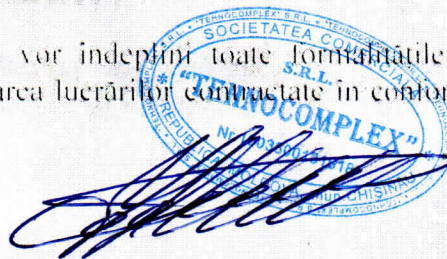 vor îndeplini toate formalitățile
area lucrărilor contractate în confor
* "TEHNOCOMPLEX" S.R.L. *
SOCIETATEA COMERCIALĂ
S.R.L.
"TEHNOCOMPLEX"
REPUBLICA MOLDOVA, mun. CHIȘINĂU